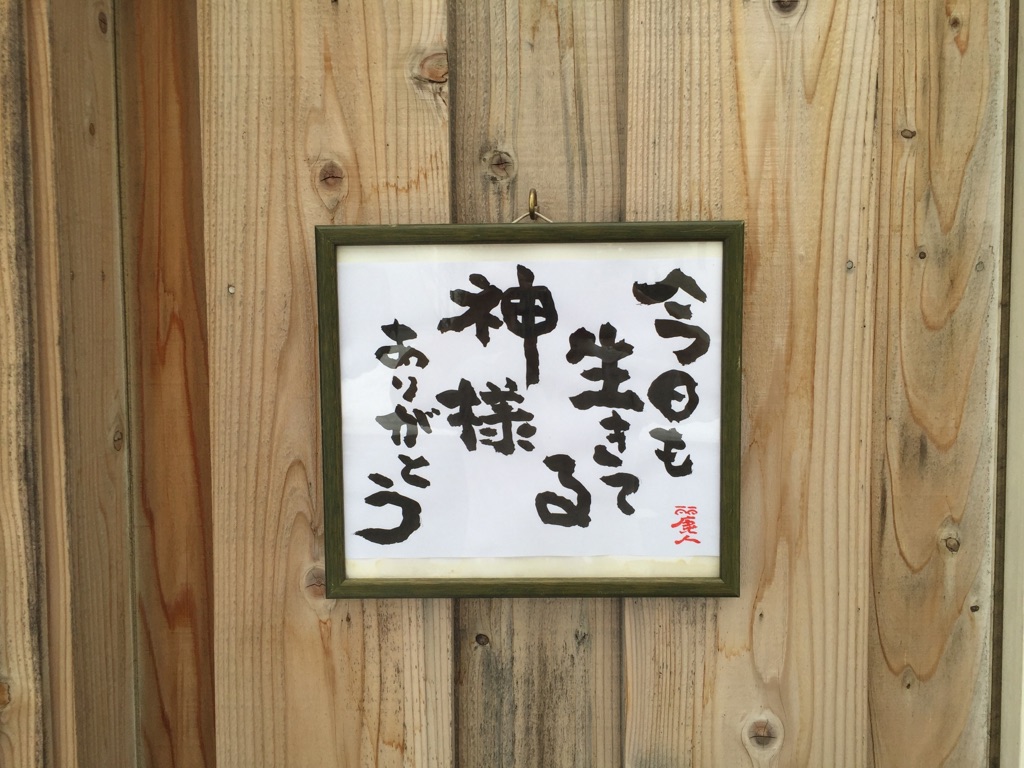 今日も
生きてる
神様
ありがとう
麗人